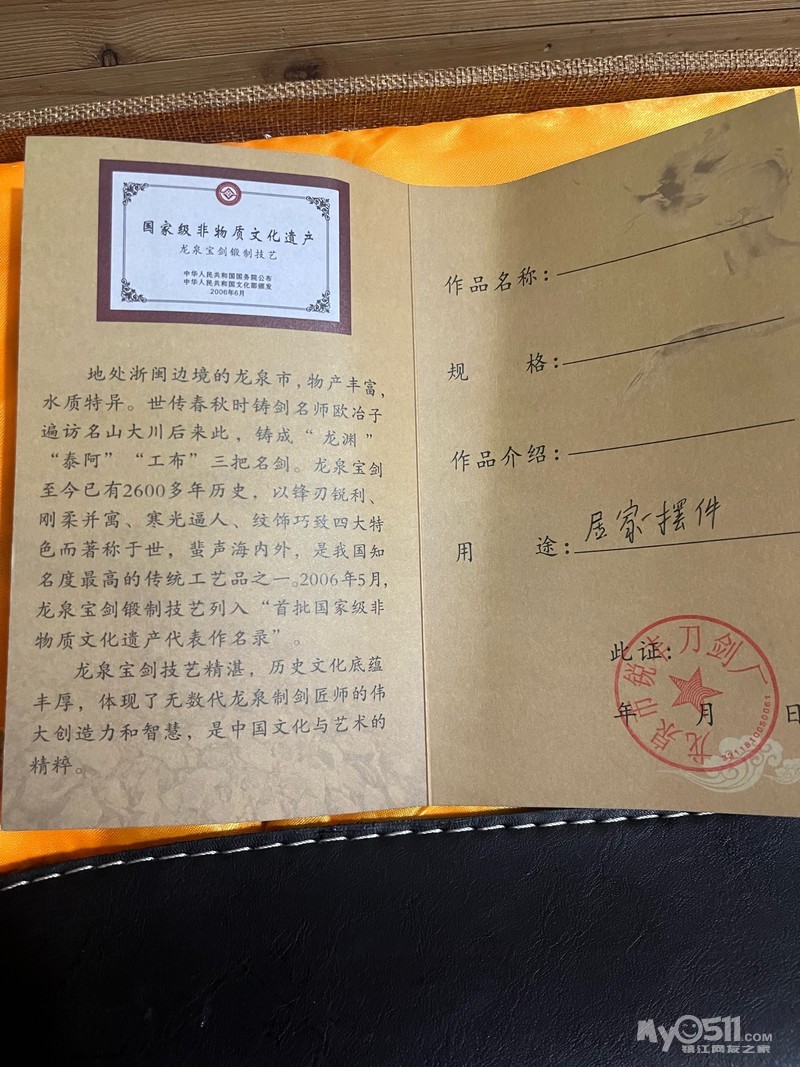 国家级非物质文化遗产
龙泉宝剑锻制技艺
中华人民共和国国务院公布
中华人民共和国文化部颁发
2006年6月
地处浙闽边境的龙泉市，物产丰富，
水质特异。世传春秋时铸剑名师欧冶子
遍访名山大川后来此，铸成“龙渊”
“泰阿”“工布”三把名剑。龙泉宝剑
至今已有2600多年历史，以锋刃锐利、
刚柔并寓、寒光逼人、纹饰巧致四大特
色而著称于世，蜚声海内外，是我国知
名度最高的传统工艺品之一。2006年5月，
龙泉宝剑锻制技艺列入“首批国家级非
物质文化遗产代表作名录”。
龙泉宝剑技艺精湛，历史文化底蕴
丰厚，体现了无数代龙泉制剑匠师的伟
大创造力和智慧，是中国文化与艺术的
精粹。
作品名称：
规 格：
作品介绍：
用 途：居家摆件
此证：
年 月 日
龙泉市锐 刀剑厂
MY0511.COM
镇江网友之家